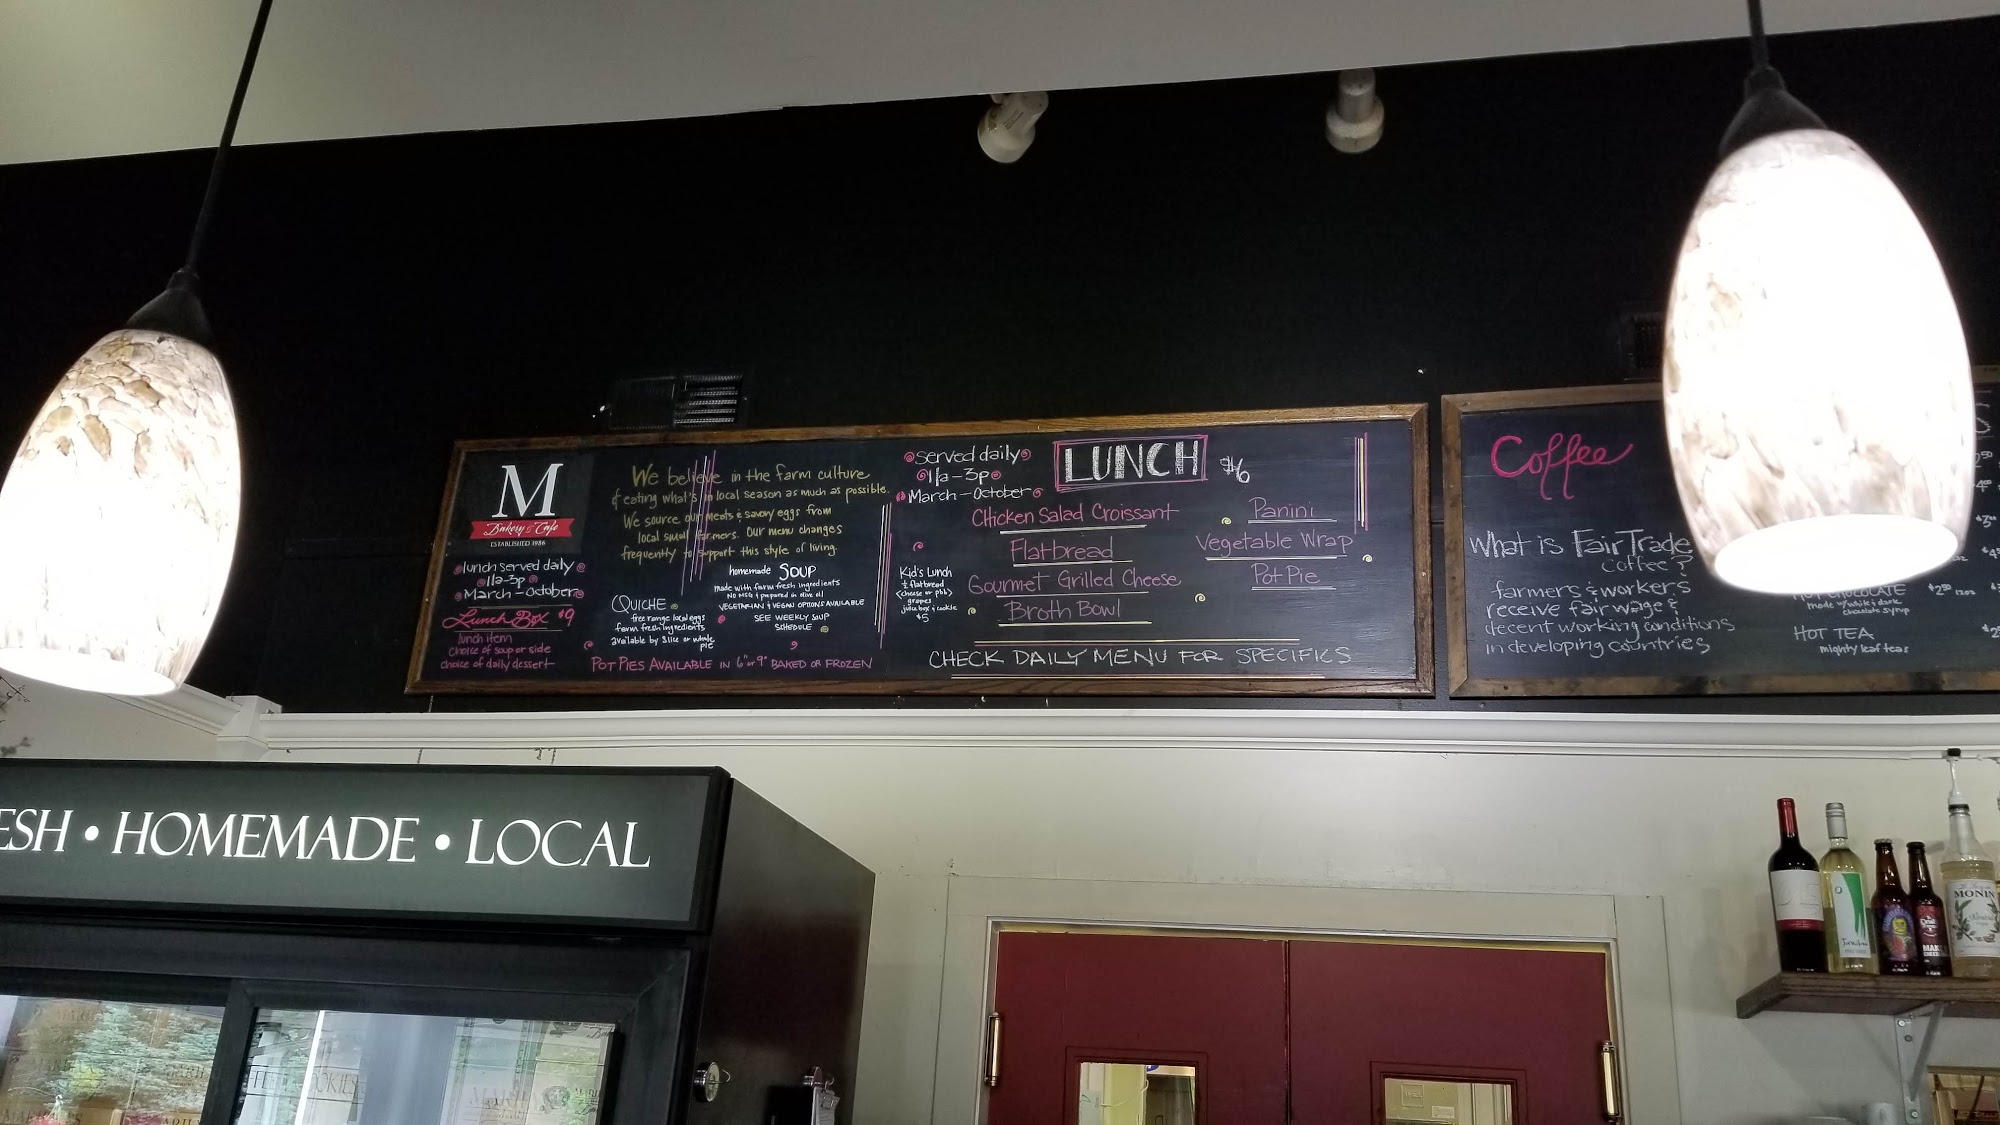 M
Bakery & Cafe
ESTABLISHED 1986
lunch served daily
11a-3p
March-October
Lunch Box $9
lunch item
choice of soup or side
choice of daily dessert
We believe in the farm culture
& eating what's in local season as much as possible.
We source our meats & savory eggs from
local small farmers. Our menu changes
frequently to support this style of living.
QUICHE
free range local eggs
farm fresh ingredients
available by slice or whole
pie
homemade SOUP
made with farm fresh ingredients
No MSG & prepared in olive oil
VEGETARIAN & VEGAN OPTIONS AVAILABLE
SEE WEEKLY SOUP
SCHEDULE
POT PIES AVAILABLE IN 6" or 9" BAKED OR FROZEN
served daily
11a-3p
March-October
LUNCH
Chicken Salad Croissant
Flatbread
Gourmet Grilled Cheese
Broth Bowl
Panini
Vegetable Wrap
Pot Pie
Kid's Lunch
½ flatbread
(cheese or pbj)
grapes
juice box & cookie
$5
CHECK DAILY MENU FOR SPECIFICS
Coffee
What is Fair Trade
Coffee?
farmers & workers
receive fair wage &
decent working conditions
in developing countries
made w/white & dark
chocolate syrup
HOT TEA
mighty leaf teas
ESH • HOMEMADE • LOCAL
MONIN